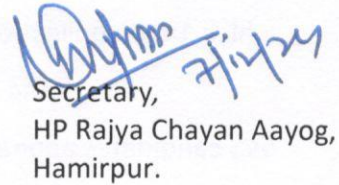 7/12/24
Secretary,
HP Rajya Chayan Aayog,
Hamirpur.